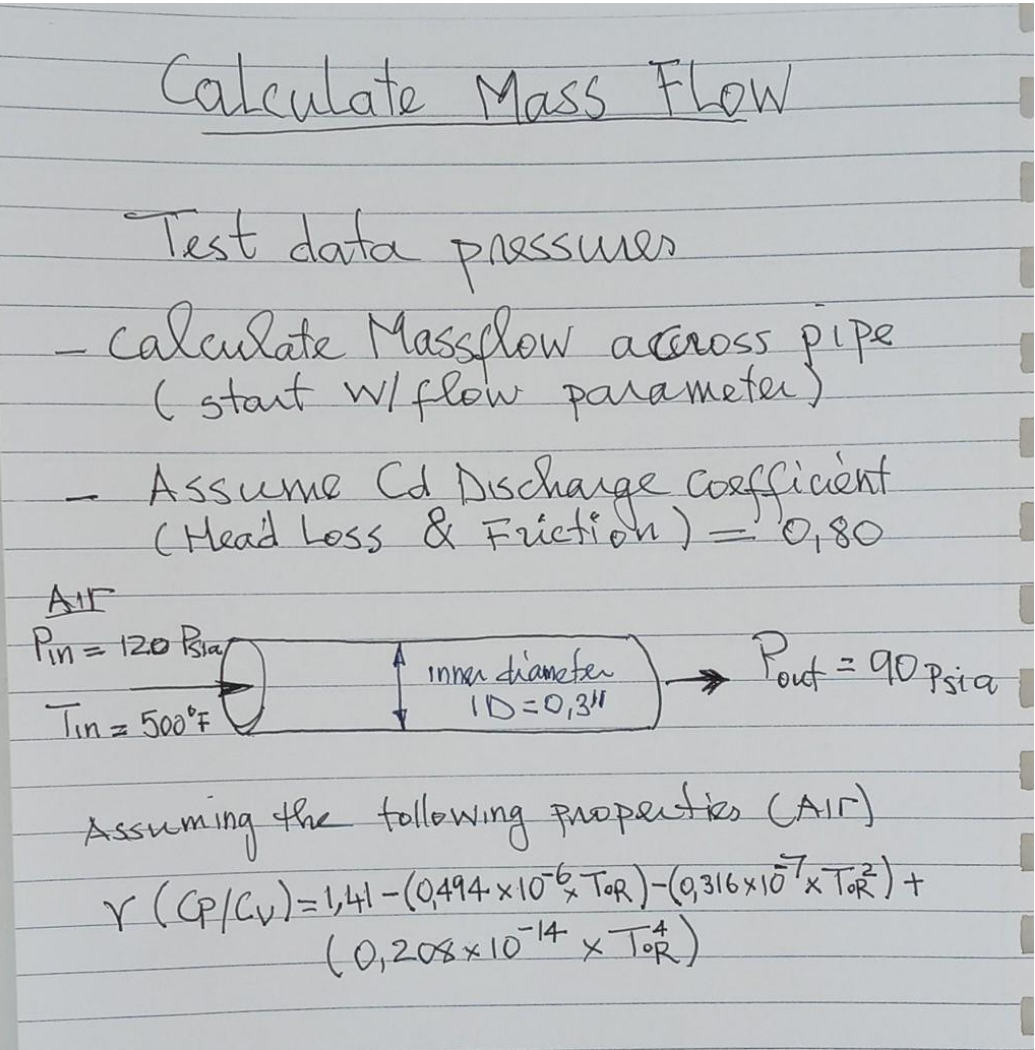 Calculate Mass Flow
Test data pressures
- Calculate Massflow accross pipe
(start w/ flow parameter)
- Assume Cd Discharge Coefficient
(Head Loss & Friction) = 0,80
Air
Pin = 120 Psia
Tin = 500°F
inner diameter
ID = 0,3"
Pout = 90 Psia
Assuming the following properties (Air)
γ (Cp/Cv) = 1,41 - (0,494 × 10⁻⁶ × T°R) - (0,316 × 10⁻⁷ × T°R²) +
(0,208 × 10⁻¹⁴ × T°R⁴)